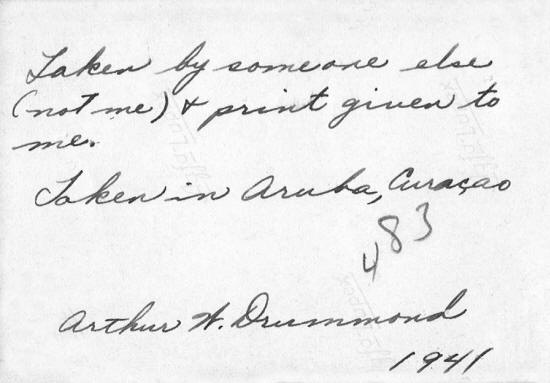 Taken by someone else
(not me) & print given to
me.
Taken in Aruba, Curaçao
483
Arthur W. Drummond
1941